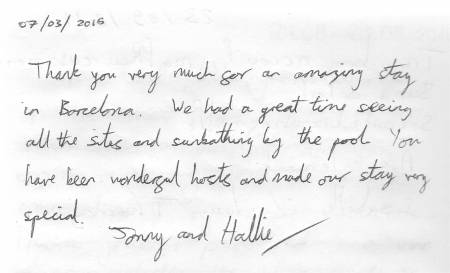 07/03/2015
Thank you very much for an amazing stay
in Barcelona. We had a great time seeing
all the sites and sunbathing by the pool. You
have been wonderful hosts and made our stay very
special.
Jonny and Hallie